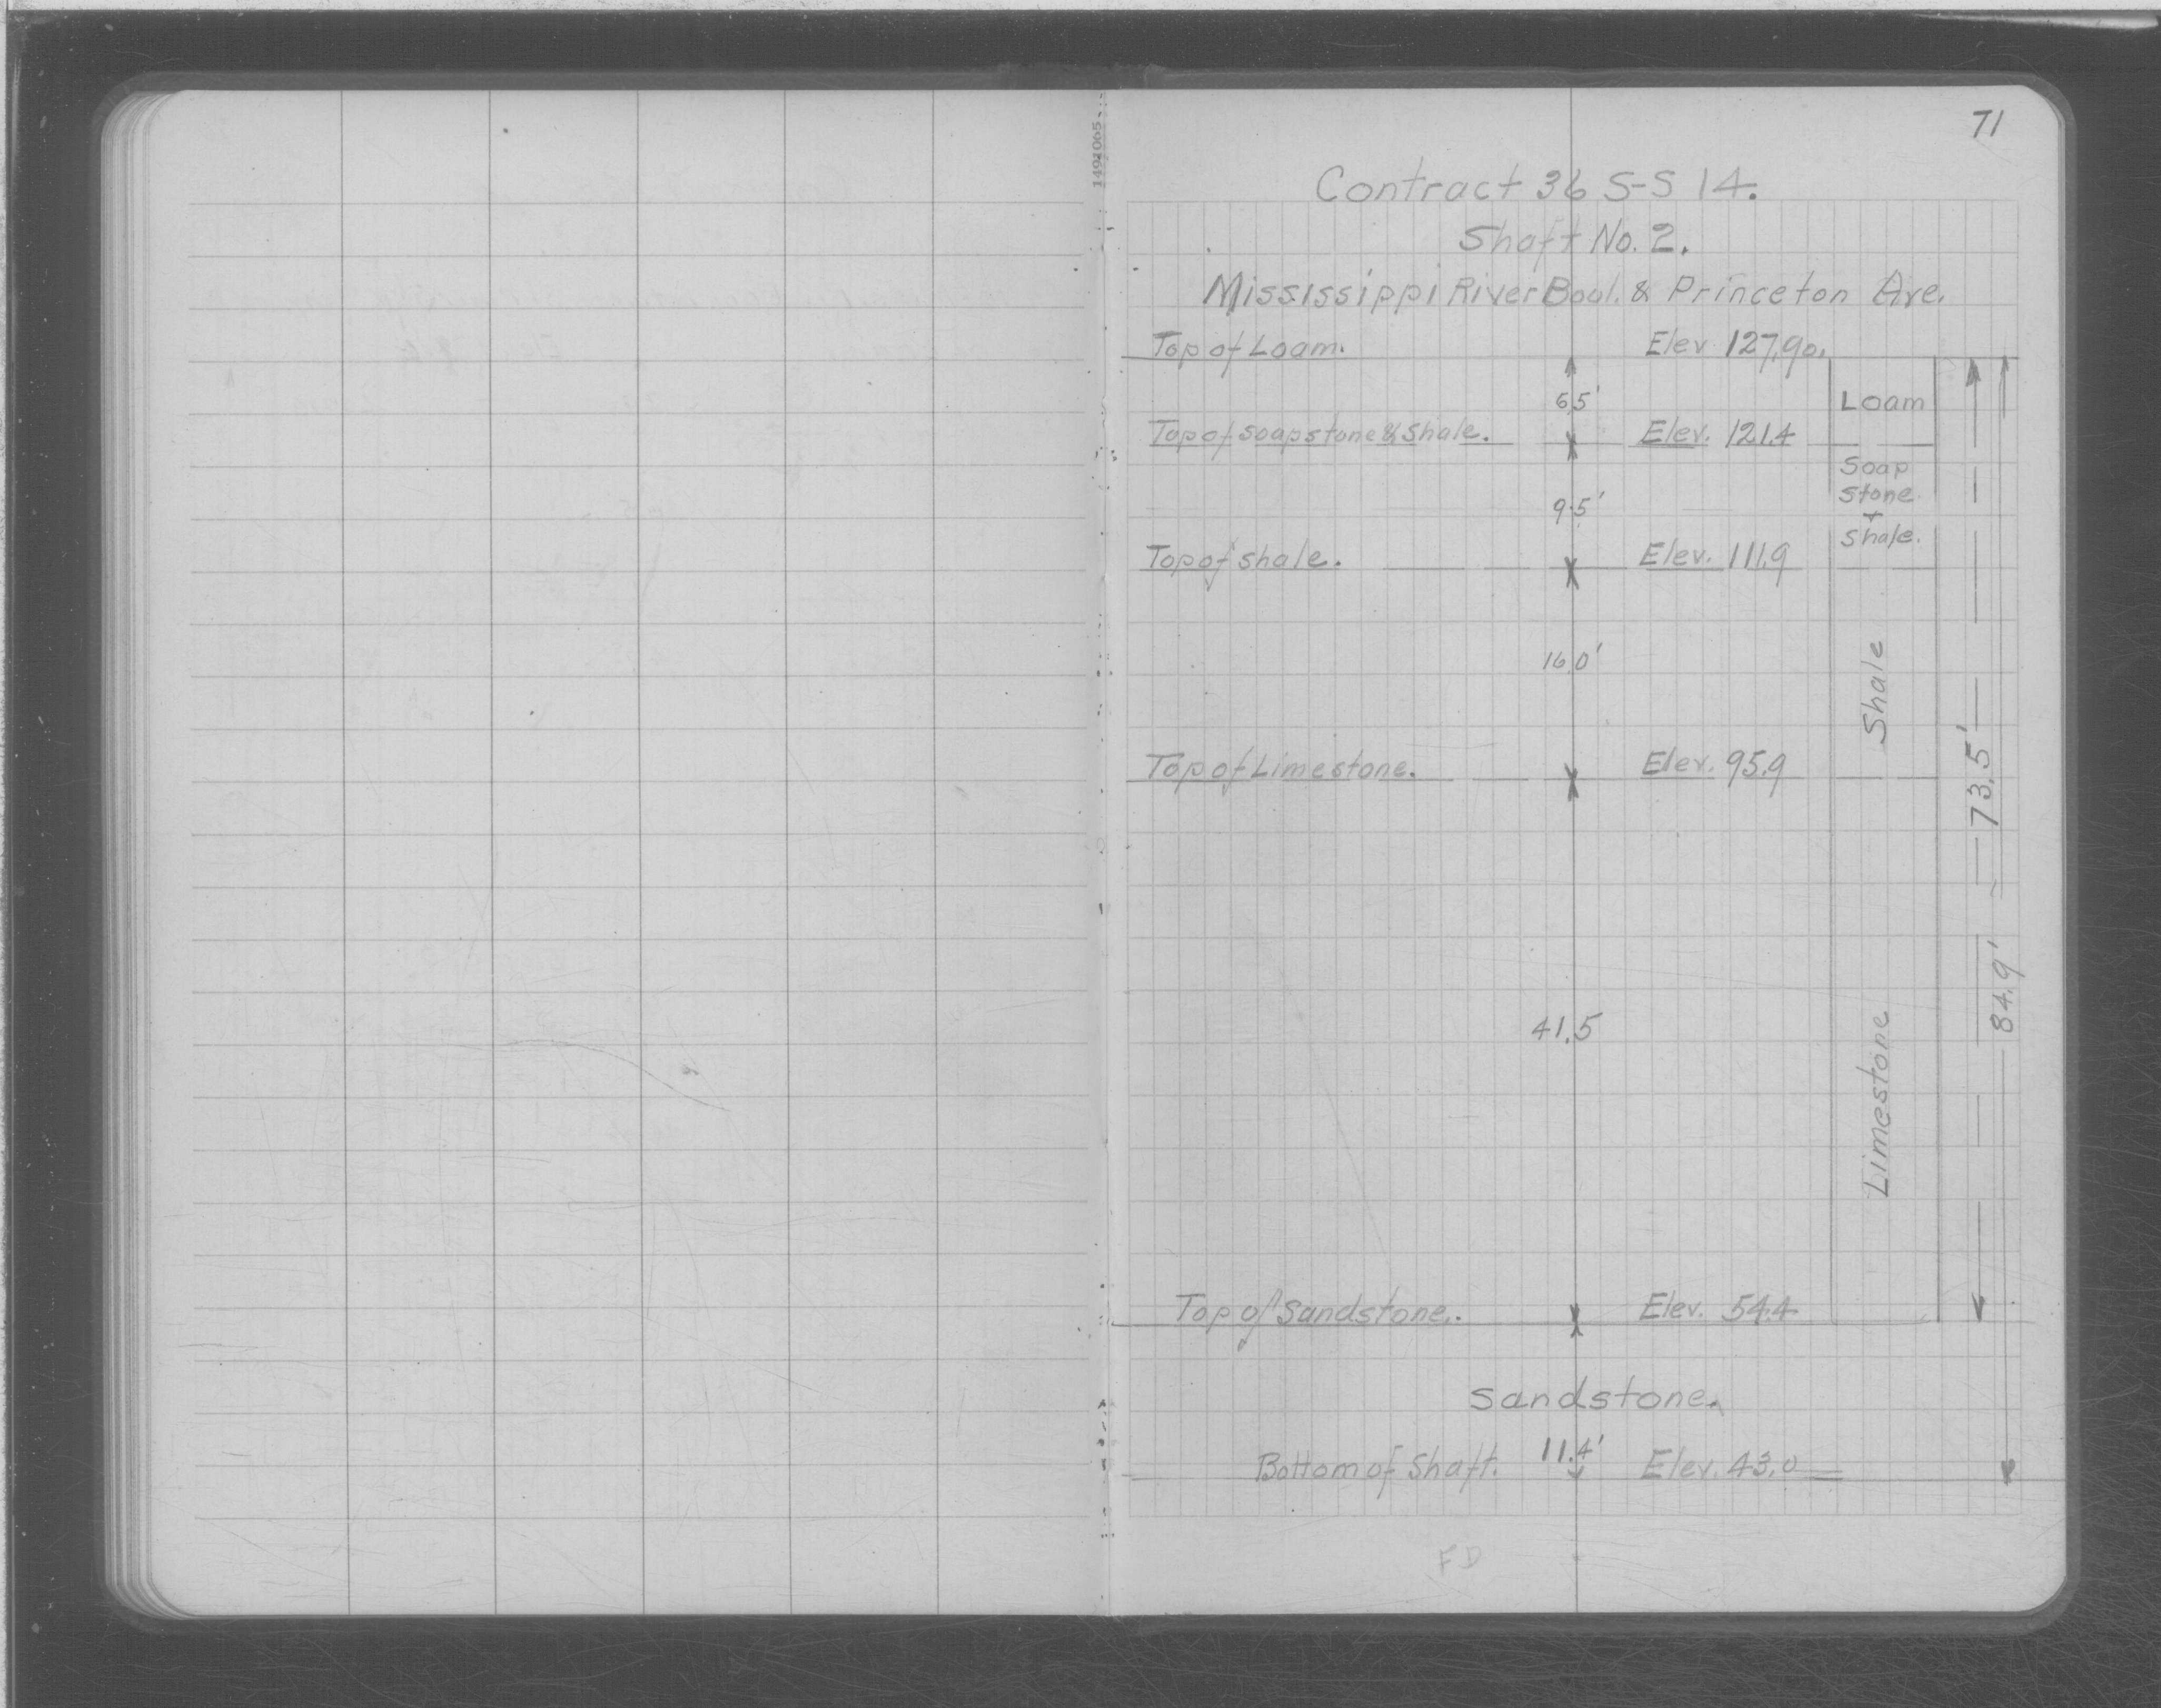 71
1491005
Contract 36 S-S 14.
Shaft No. 2.
Mississippi River Boul. & Princeton Ave.
Top of Loam. Elev 127.90.
6.5' Loam
Top of Soapstone & Shale. Elev. 121.4
9.5' Soap
stone
+
Shale.
Top of Shale. Elev. 111.9
16.0' Shale
Top of Limestone. Elev. 95.9
73.5'
84.9'
41.5 Limestone
Top of Sandstone. Elev. 54.4
Sandstone.
11.4'
Bottom of Shaft. Elev. 43.0
FD